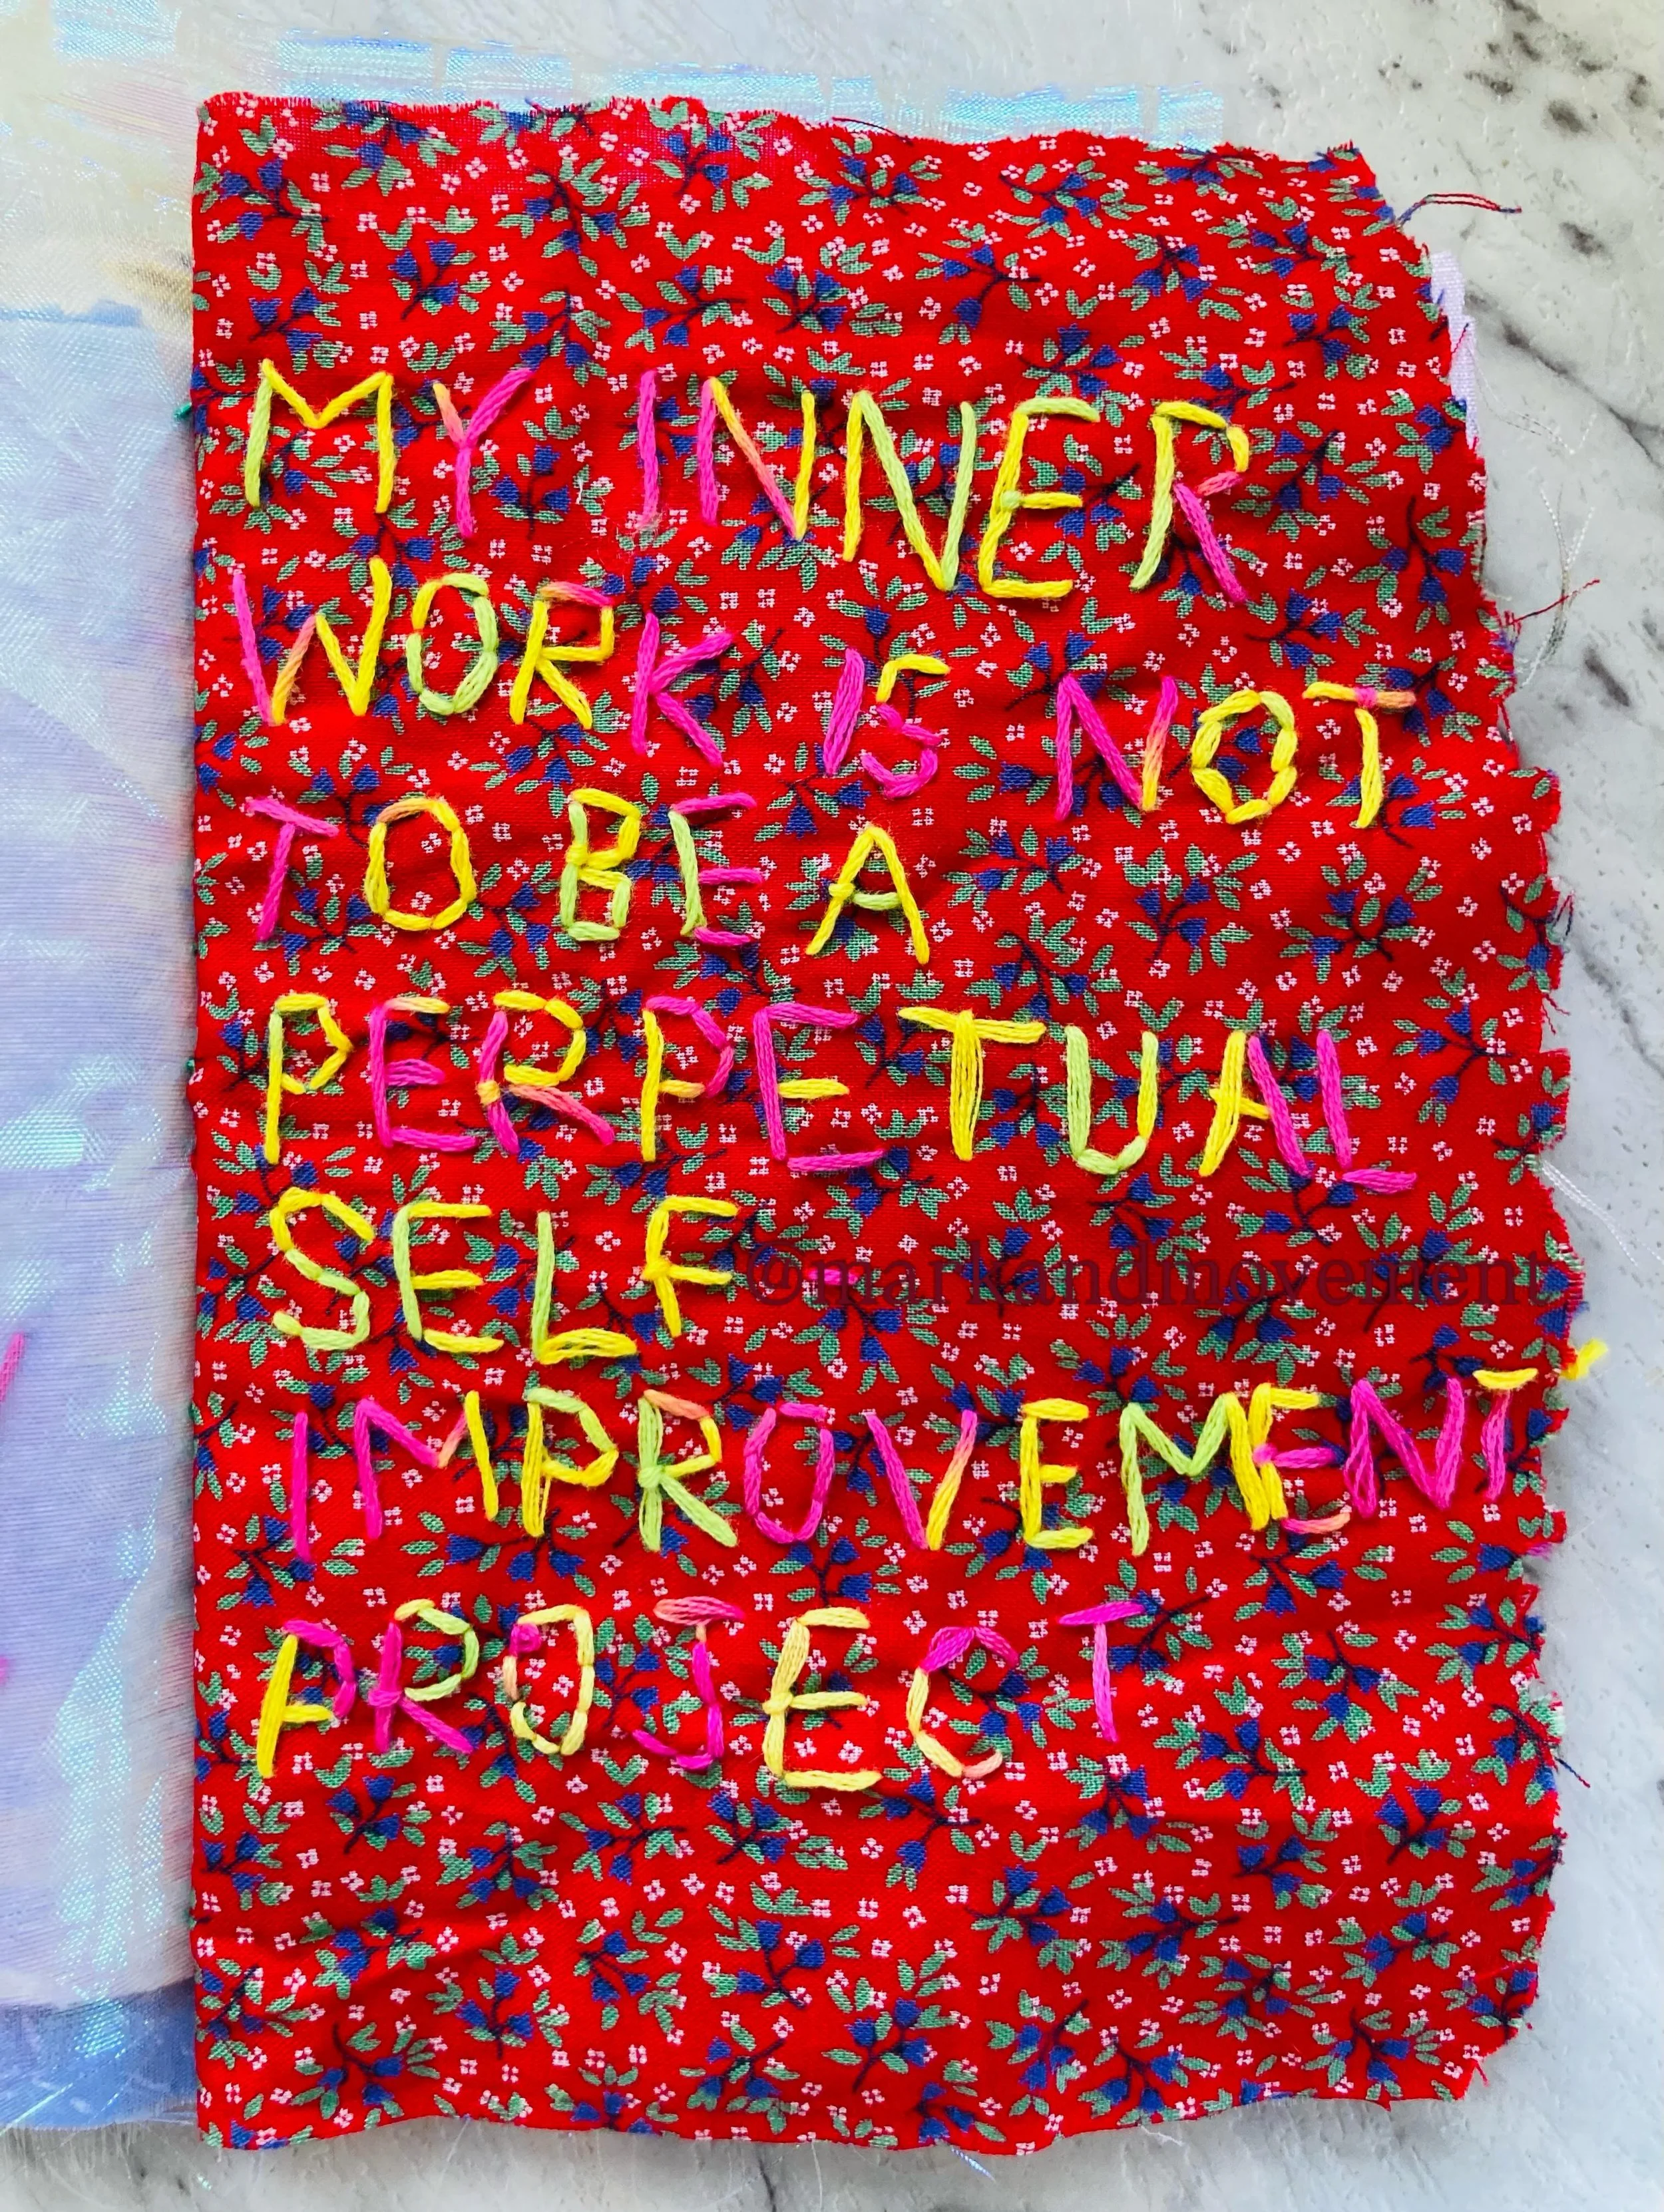 MY INNER
WORK IS NOT
TO BE A
PERPETUAL
SELF
@markandmovement
IMPROVEMENT
PROJECT